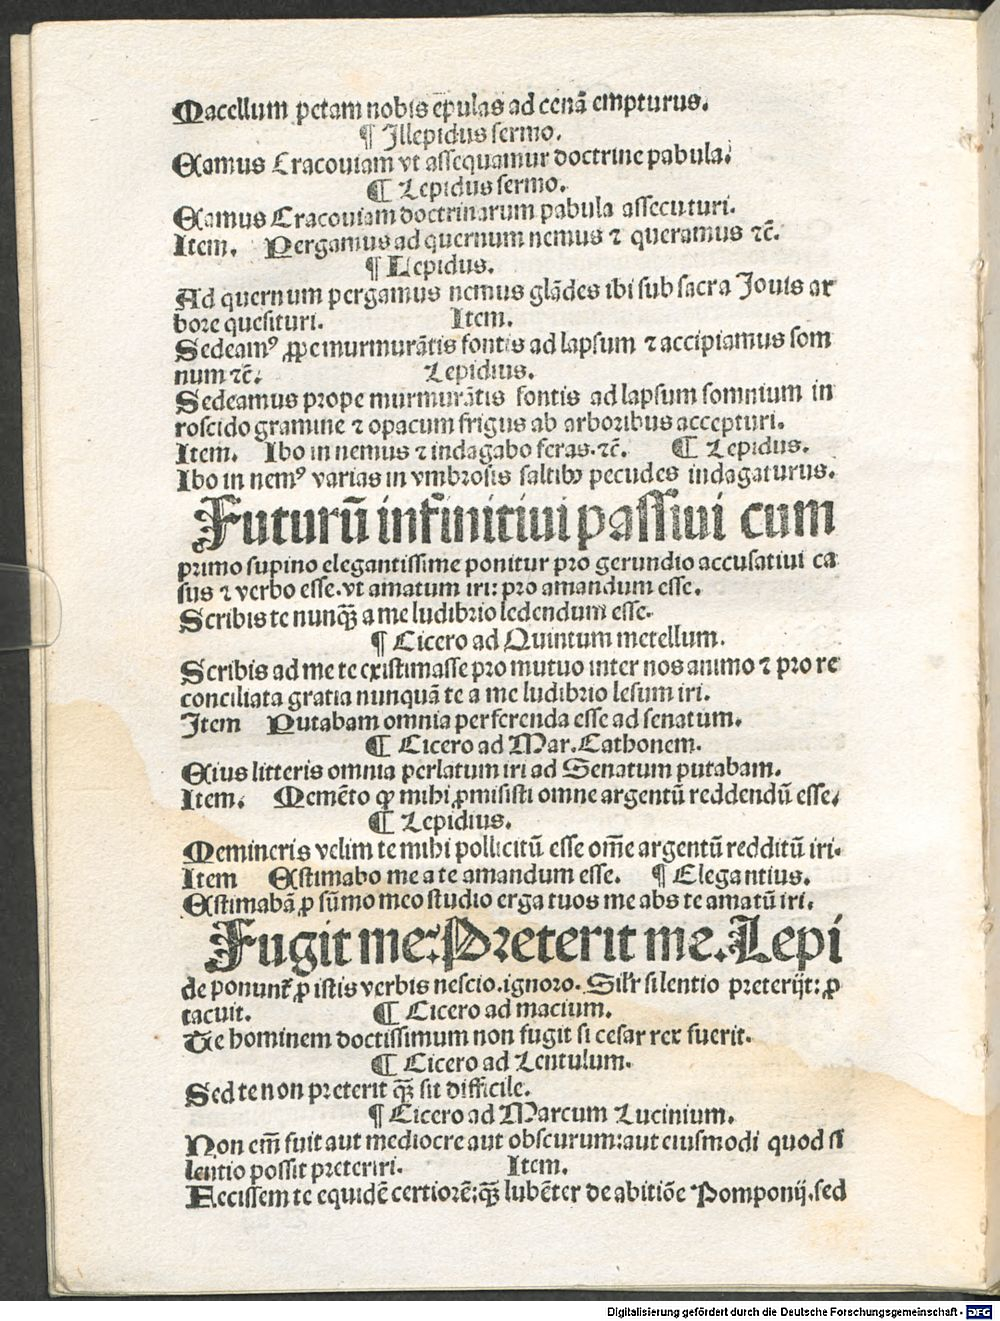 Macellum petam nobis epulas ad cenã empturus.
¶ Illepidus sermo.
Eamus Cracouiam vt assequamur doctrine pabula.
¶ Lepidus sermo.
Eamus Cracouiam doctrinarum pabula assecuturi.
Item. Pergamus ad quernum nemus ⁊ queramus ⁊c̃.
¶ Lepidus.
Ad quernum pergamus nemus glãdes ibi sub sacra Jouis ar
bore quesituri. Item.
Sedeamꝰ ꝓpe murmurãtis fontis ad lapsum ⁊ accipiamus som
num ⁊c̃. Lepidius.
Sedeamus prope murmurãtis fontis ad lapsum somnium in
roscido gramine ⁊ opacum frigus ab arboribus accepturi.
Item. Ibo in nemus ⁊ indagabo feras.⁊c̃. ¶ Lepidus.
Ibo in nemꝰ varias in vmbrosis saltibꝰ pecudes indagaturus.
Futurũ infinitiui passiui cum
primo supino elegantissime ponitur pro gerundio accusatiui ca
sus ⁊ verbo esse. vt amatum iri: pro amandum esse.
Scribis te nunqꝫ a me ludibrio ledendum esse.
¶ Cicero ad Quintum metellum.
Scribis ad me te existimasse pro mutuo inter nos animo ⁊ pro re
conciliata gratia nunquã te a me ludibrio lesum iri.
Item Putabam omnia perferenda esse ad senatum.
¶ Cicero ad Mar. Cathonem.
Eius litteris omnia perlatum iri ad Senatum putabam.
Item. Memẽto ꝙ mihi ꝓmisisti omne argentũ reddendũ esse.
¶ Lepidius.
Memineris velim te mihi pollicitũ esse om̃e argentũ redditũ iri.
Item Estimabo me a te amandum esse. ¶ Elegantius.
Estimabã ꝓ sũmo meo studio erga tuos me abs te amatũ iri.
Fugit me: Preterit me. Lepi
de ponunt̃ ꝓ istis verbis nescio. ignoro. Sil̃r silentio preterijt: ꝓ
tacuit. ¶ Cicero ad macium.
Te hominem doctissimum non fugit si cesar rex fuerit.
¶ Cicero ad Lentulum.
Sed te non preterit qꝫ sit difficile.
¶ Cicero ad Marcum Lucinium.
Non em̃ fuit aut mediocre aut obscurum: aut eiusmodi quod si
lentio possit preteriri. Item.
Fecissem te equidẽ certiorẽ: qꝫ lubẽter de abitiõe Pomponij. sed
Digitalisierung gefördert durch die Deutsche Forschungsgemeinschaft - DFG